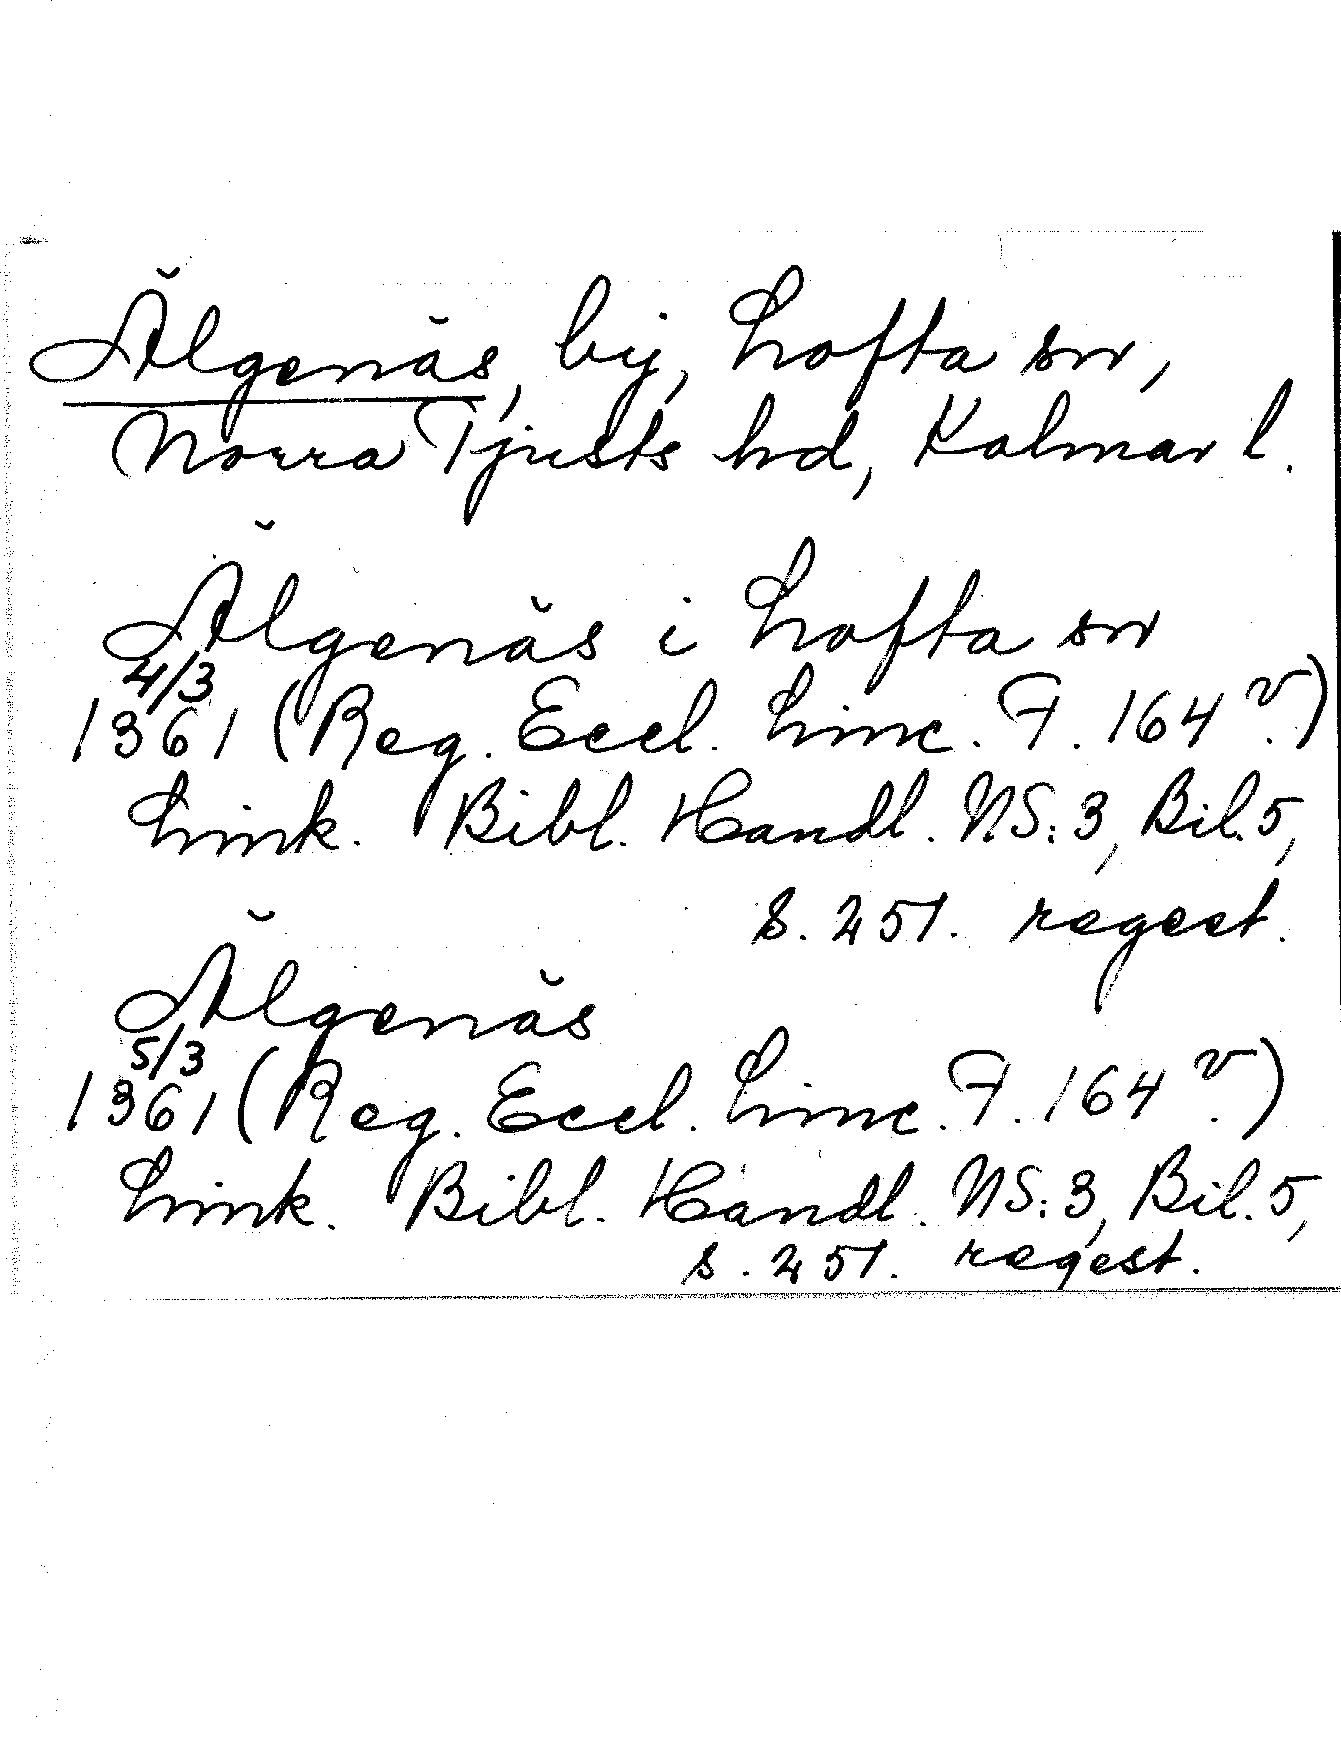 Älgenäs, by, Lofta sn,
Norra Tjusts hd, Kalmar l.
Älgenäs i Lofta sn
4/3
1361 (Reg. Eccl. Linc. F. 164 v.)
Link. Bibl. Handl. NS: 3, Bil. 5,
s. 251. regest.
Älgenäs
5/3
1361 (Reg. Eccl. Linc. F. 164 v.)
Link. Bibl. Handl. NS: 3, Bil. 5,
s. 251. regest.